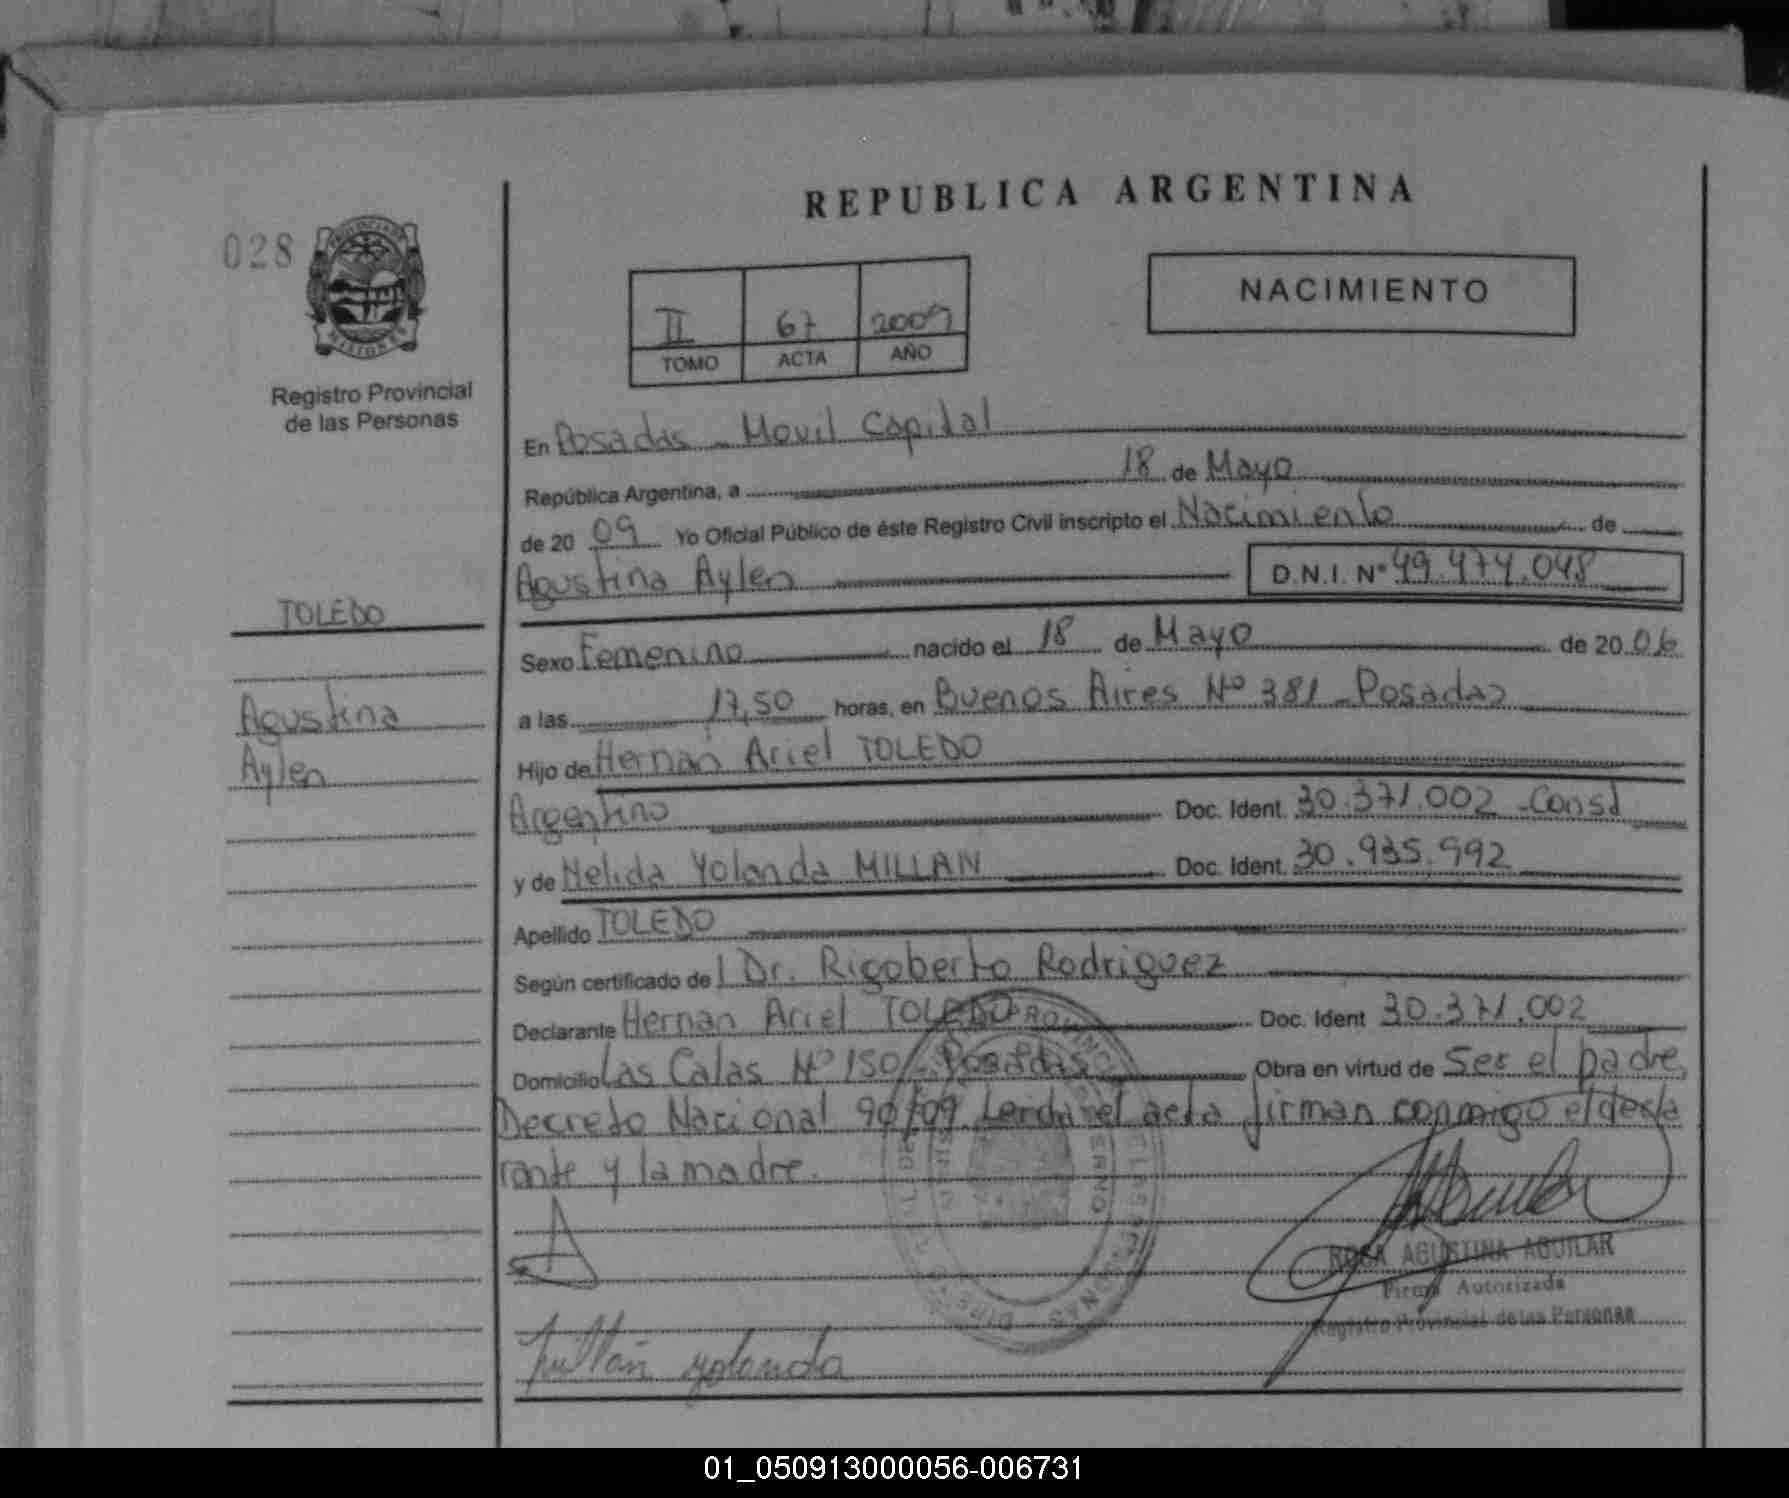 REPUBLICA ARGENTINA
028
PROVINCIA DE
MISIONES
Registro Provincial
de las Personas
II 67 2009
TOMO ACTA AÑO
NACIMIENTO
En Posadas - Movil Capital
República Argentina, a 18 de Mayo
de 20 09 Yo Oficial Público de éste Registro Civil inscripto el Nacimiento de
Agustina Aylen D.N.I. Nº 49.474.048
TOLEDO
Agustina
Aylen
Sexo Femenino nacido el 18 de Mayo de 20 06
a las 17,50 horas, en Buenos Aires Nº 381 - Posadas
Hijo de Hernan Ariel TOLEDO
Argentino Doc. Ident. 30.371.002 - Consd
y de Nelida Yolanda MILLAN Doc. Ident. 30.935.992
Apellido TOLEDO
Según certificado de l Dr. Rigoberto Rodriguez
Declarante Hernan Ariel TOLEDO Doc. Ident 30.371.002
Domicilio Las Calas Nº 150 - Posadas Obra en virtud de Ser el padre,
Decreto Nacional 90/09. Leida el acta firman conmigo el decla
rante y la madre.
ROSA AGUSTINA AGUILAR
Firma Autorizada
Registro Provincial de las Personas
Millán yolanda
01_050913000056-006731